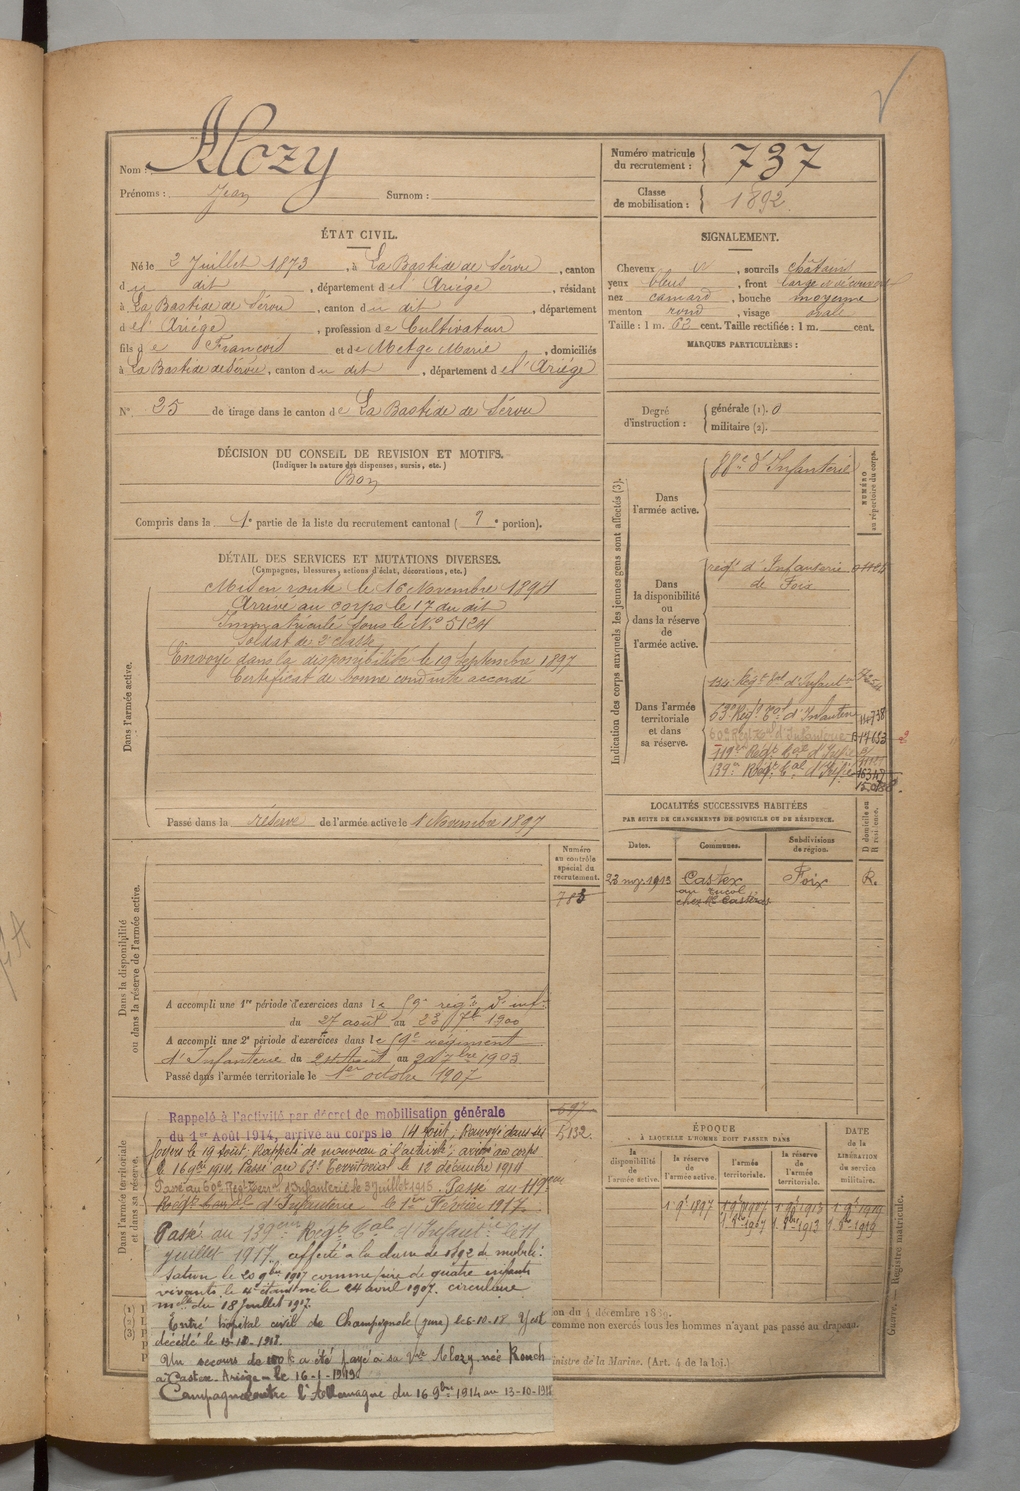 Nom : Alozy
Prénoms : Jean Surnom :
Numéro matricule du recrutement : 737
Classe de mobilisation : 1892
ÉTAT CIVIL.
Né le 2 Juillet 1873, à La Bastide de Sérou, canton
du dit, département de l'Ariége, résidant
à La Bastide de Sérou, canton du dit, département
de l'Ariége, profession de Cultivateur
fils de François et de Metge Marie, domiciliés
à La Bastide de Sérou, canton du dit, département de l'Ariége
N° 25 de tirage dans le canton de La Bastide de Sérou
DÉCISION DU CONSEIL DE REVISION ET MOTIFS.
(Indiquer la nature des dispenses, sursis, etc.)
Bon
Compris dans la 1e partie de la liste du recrutement cantonal ( e portion).
SIGNALEMENT.
Cheveux , sourcils châtain
yeux bleus, front large
nez camard, bouche moyenne
menton rond, visage ovale
Taille : 1 m. 62 cent. Taille rectifiée : 1 m. cent.
MARQUES PARTICULIÈRES :
Degré d'instruction : générale (1). 0
militaire (2).
DÉTAIL DES SERVICES ET MUTATIONS DIVERSES.
(Campagnes, blessures, actions d'éclat, décorations, etc.)
Dans l'armée active.
Mis en route le 16 Novembre 1894
Arrivé au corps le 17 du dit
Immatriculé sous le N° 5124
Soldat de 2e classe
Envoyé dans la disponibilité le 19 Septembre 1897
Certificat de bonne conduite accordé
Passé dans la réserve de l'armée active le 1 Novembre 1897
Indication des corps auxquels les jeunes gens sont affectés (3).
NUMÉRO au répertoire du corps.
Dans l'armée active.
88e d'Infanterie
Dans la disponibilité ou dans la réserve de l'armée active.
regt d'Infanterie
de Foix
Dans l'armée territoriale et dans sa réserve.
134e Regt tal d'Infant
63e Regt tal d'Infanterie
60e Regt tal d'Infanterie 17653
119e Regt tal d'Infie
139e Regt tal d'Infie
LOCALITÉS SUCCESSIVES HABITÉES
PAR SUITE DE CHANGEMENTS DE DOMICILE OU DE RÉSIDENCE.
Dates. Communes. Subdivisions de région. D domicile ou R résidence.
23 nov. 1913 Castex Foix R.
Dans la disponibilité ou dans la réserve de l'armée active.
Numéro au contrôle spécial du recrutement.
783
A accompli une 1re période d'exercices dans le 59e regt d'inf.
du 27 août au 23 7b 1900
A accompli une 2e période d'exercices dans le 59e régiment
d'Infanterie du 24 Août au 20 7bre 1903
Passé dans l'armée territoriale le 1er octobre 1907
Dans l'armée territoriale et dans sa réserve.
Rappelé à l'activité par décret de mobilisation générale
du 1er Août 1914, arrivé au corps le 14 août, Renvoyé dans ses
foyers le 19 août. Rappelé de nouveau à l'activité, arrivé au corps
le 16 9bre 1914. Passé au 63e Territorial le 12 décembre 1914
Passé au 60e Regt Terr d'Infanterie le 3 Juillet 1915. Passé au 119eme
Regt tal d'Infanterie le 1er Février 1917.
597
5132
Passé au 139eme Regt tal d'Infantie le 11
juillet 1917. affecté à la classe de 1892 de mobili-
sation le 20 9bre 1917 comme père de quatre enfants
vivants, le 4e étant né le 24 avril 1907. circulaire
melle du 18 Juillet 1917.
Entré hôpital civil de Champagnole (jura) le 6-10-18. Y est
décédé le 13-10-1918.
Un secours de a été payé à sa Vve Alozy, née Rouch
à Castex. Ariège - le 16-1-1919
Campagne contre l'Allemagne du 16 9bre 1914 au 13-10-1918
ÉPOQUE
À LAQUELLE L'HOMME DOIT PASSER DANS
la disponibilité de l'armée active. la réserve de l'armée active. l'armée territoriale. la réserve de l'armée territoriale.
DATE de la LIBÉRATION du service militaire.
1 9e 1897 1 9e 1907 1 9e 1913 1 9e 1919
1 8bre 1907 1 8bre 1913 1 8bre 1919
on du 4 décembre 1889.
comme non exercés tous les hommes n'ayant pas passé au drapeau.
inistre de la Marine. (Art. 4 de la loi.)
Guerre. Registre matricule.